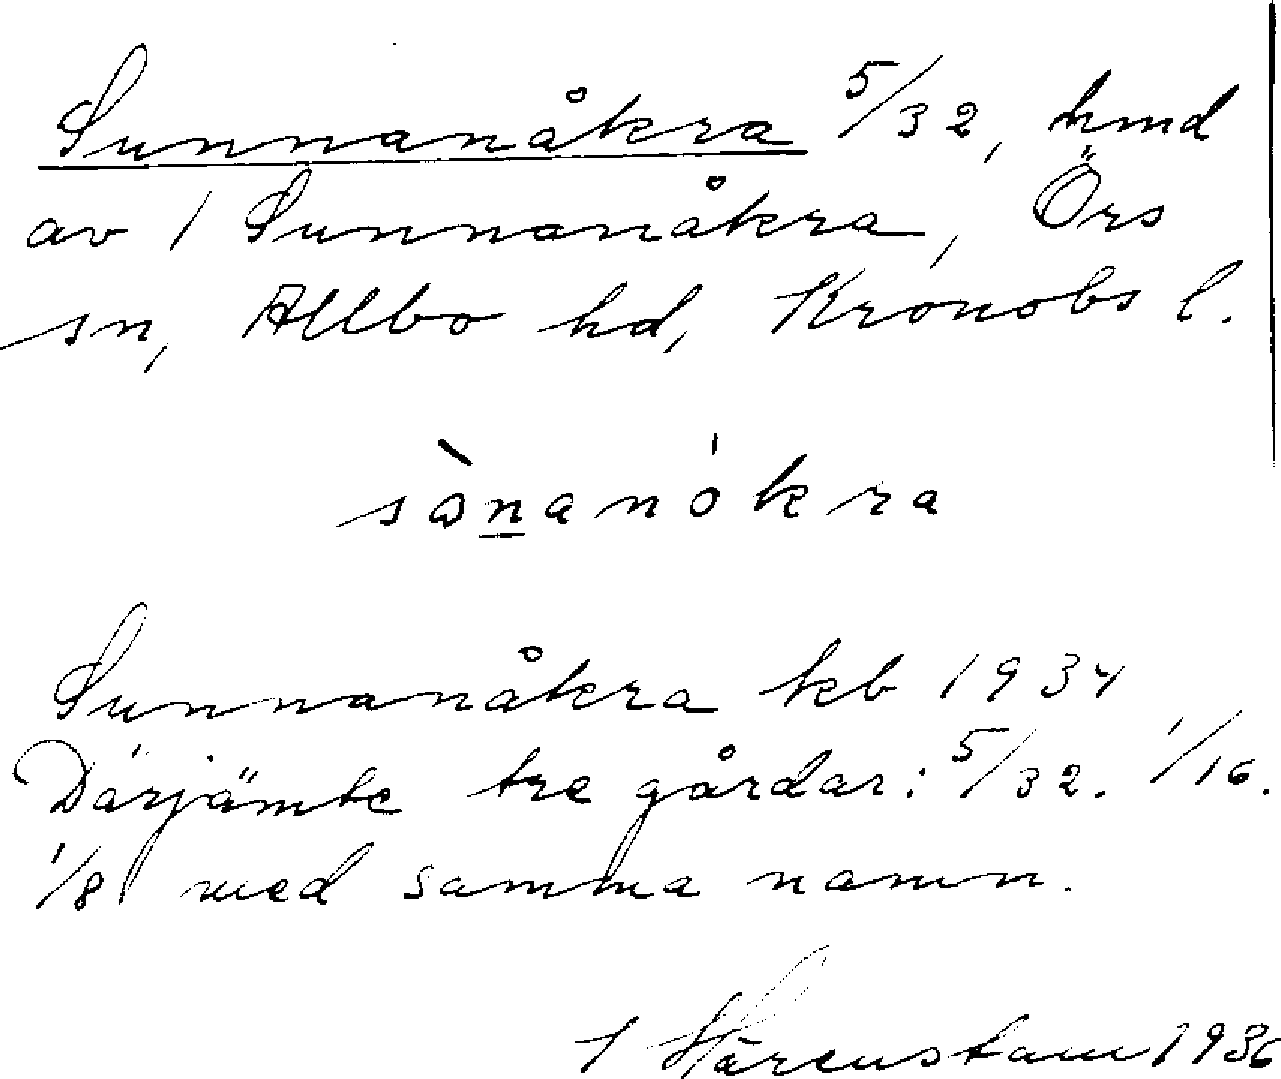 Sunnanåkra 5/32, hmd
av 1 Sunnanåkra, Örs
sn, Allbo hd, Kronobs l.
sànanókra
Sunnanåkra kb 1934
Därjämte tre gårdar: 5/32. 1/16.
1/8 med samma namn.
1936